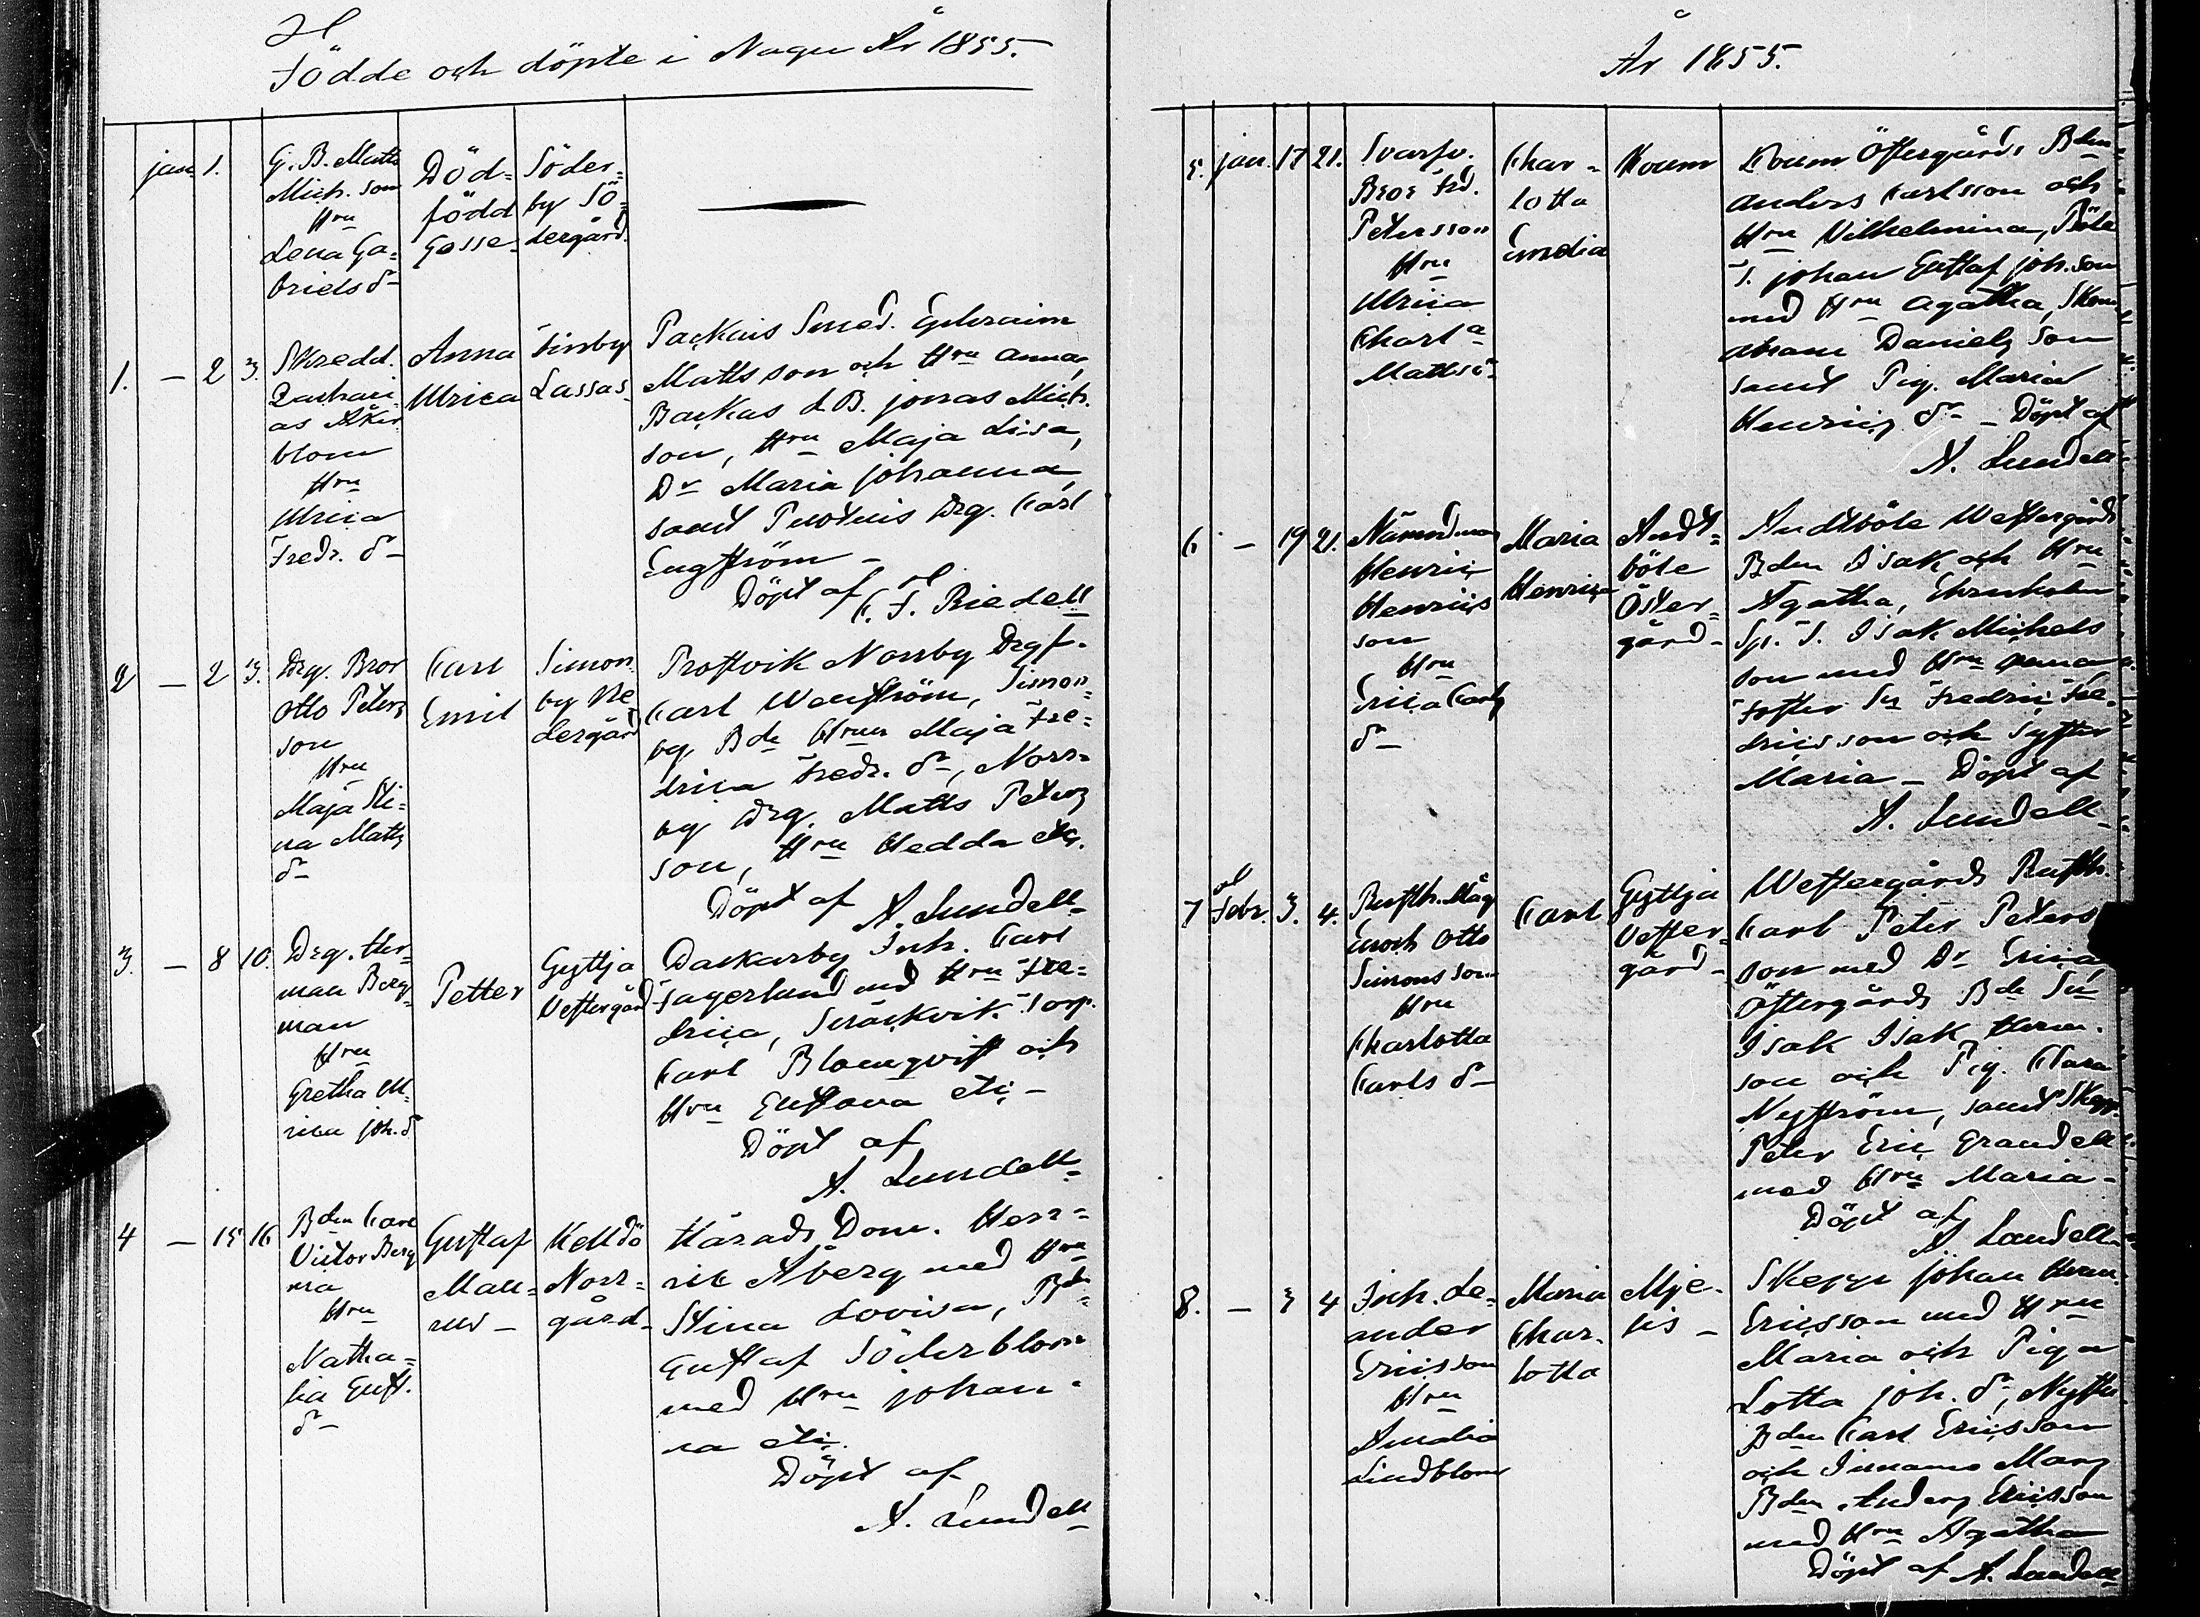 Födde och döpte i Nagu År 1855.
jan 1.
G. B. Matts
Mich. son
Hru
Lena Ga=
briels dr
Död=
född
Gosse
Söder=
by Sö=
dergård
1. — 2 3.
Skredd.
Zachari=
as Åker
blom
Hru
Ulrica
Fredr. dr
Anna
Ulrica
Finby
Lassas
Packais Smed. Ephraim
Mattsson och Hru Anna,
Backas d.B. Jonas Mich.
son, Hru Maja Lisa,
Dr Maria Johanna
samt Drg. Carl
Engström
Döpt af C. F. Riedell
2 — 2 3.
Drg. Bror
Otto Peters
son
Hru
Maja Sti=
na Matts
dr
Carl
Emil
Simon
by Ne
dergård
Protvik Norrby Drgf.
Carl Wenström, Simon=
by Bde Hrun Maja Fre=
drica Fredr. dr, Norr=
by Drg. Matts Peters
son, Hru Hedda etc.
Döpt af A. Lundell
3. — 8 10.
Drg. Her=
man Berg=
man
Hru
Gretha Ul=
rica Joh. d
Petter
Gyttja
Vestergård
Darkarby Inh. Carl
Fagerlund med Hru Fre=
drica, Torp.
Carl Blomqvist och
Hru Gustava etc.
Döpt af
A. Lundell
4 — 15 16
Bden Carl
Victor Berg
ma
Hru
Natha=
lia Gust.
dr
Gustaf
Mau=
rus
Kelldö
Norr=
gård
Härads Dom. Hen=
ric Åberg med Hru
Stina Lovisa, Bde
Gustaf Söderblom
med Hru Johan=
na etc.
Döpt af
A. Lundell
År 1855.
5. jan. 17 21.
Svarfv.
Bror Frd.
Petersson
Hru
Ulrica
Charl.a
Matts dr
Char=
lotta
Emelia
Koum
Koum Östergårds Bden
Anders Carlsson och
Hru Vilhelmina,
T. Johan Gustaf Joh.son
med Hru Agatha,
Daniels son
samt Pig. Maria
Henrics dr — Döpt af
A. Lundell
6 — 19 21.
Nämndman
Henric
Henrics
son
Hru
Erica Carls
dr
Maria
Henrica
Andt=
böle
Öster=
gård
Andtböle Westergårds
Bden Isak och Hru
Agatha, Ehrnholm
Sp. T. Isak Michels
son med Hru Anna,
Foster Sn Fredric Fre=
dricsson och Syster
Maria — Döpt af
A. Lundell
7 Febr. 3. 4.
Rusth. Måg
Enoch Otto
Simons son
Hru
Charlotta
Carls dr
Carl
Gyttja
Vester=
gård
Westergårds Rusth.
Carl Peter Peters
son med Dr Erica,
Östergårds Bde Sn
Isak Isak Herm.
son och Pig. Clara
Nyström, samt Skepp.
Peter Eric Grandell
med Hru Maria
Döpt af
A. Lundell
8. — 3 4
Inh. Le=
ander
Ericsson
Hru
Amalia
Lindblom
Maria
Char=
lotta
Mje=
lis
Skepp. Johan Herm.
Ericsson med Hru
Maria och Piga
Lotta Joh. dr,
Bden Carl Ericsson
och
Bden Anders Ericsson
med Hru Agatha
Döpt af A. Lundell